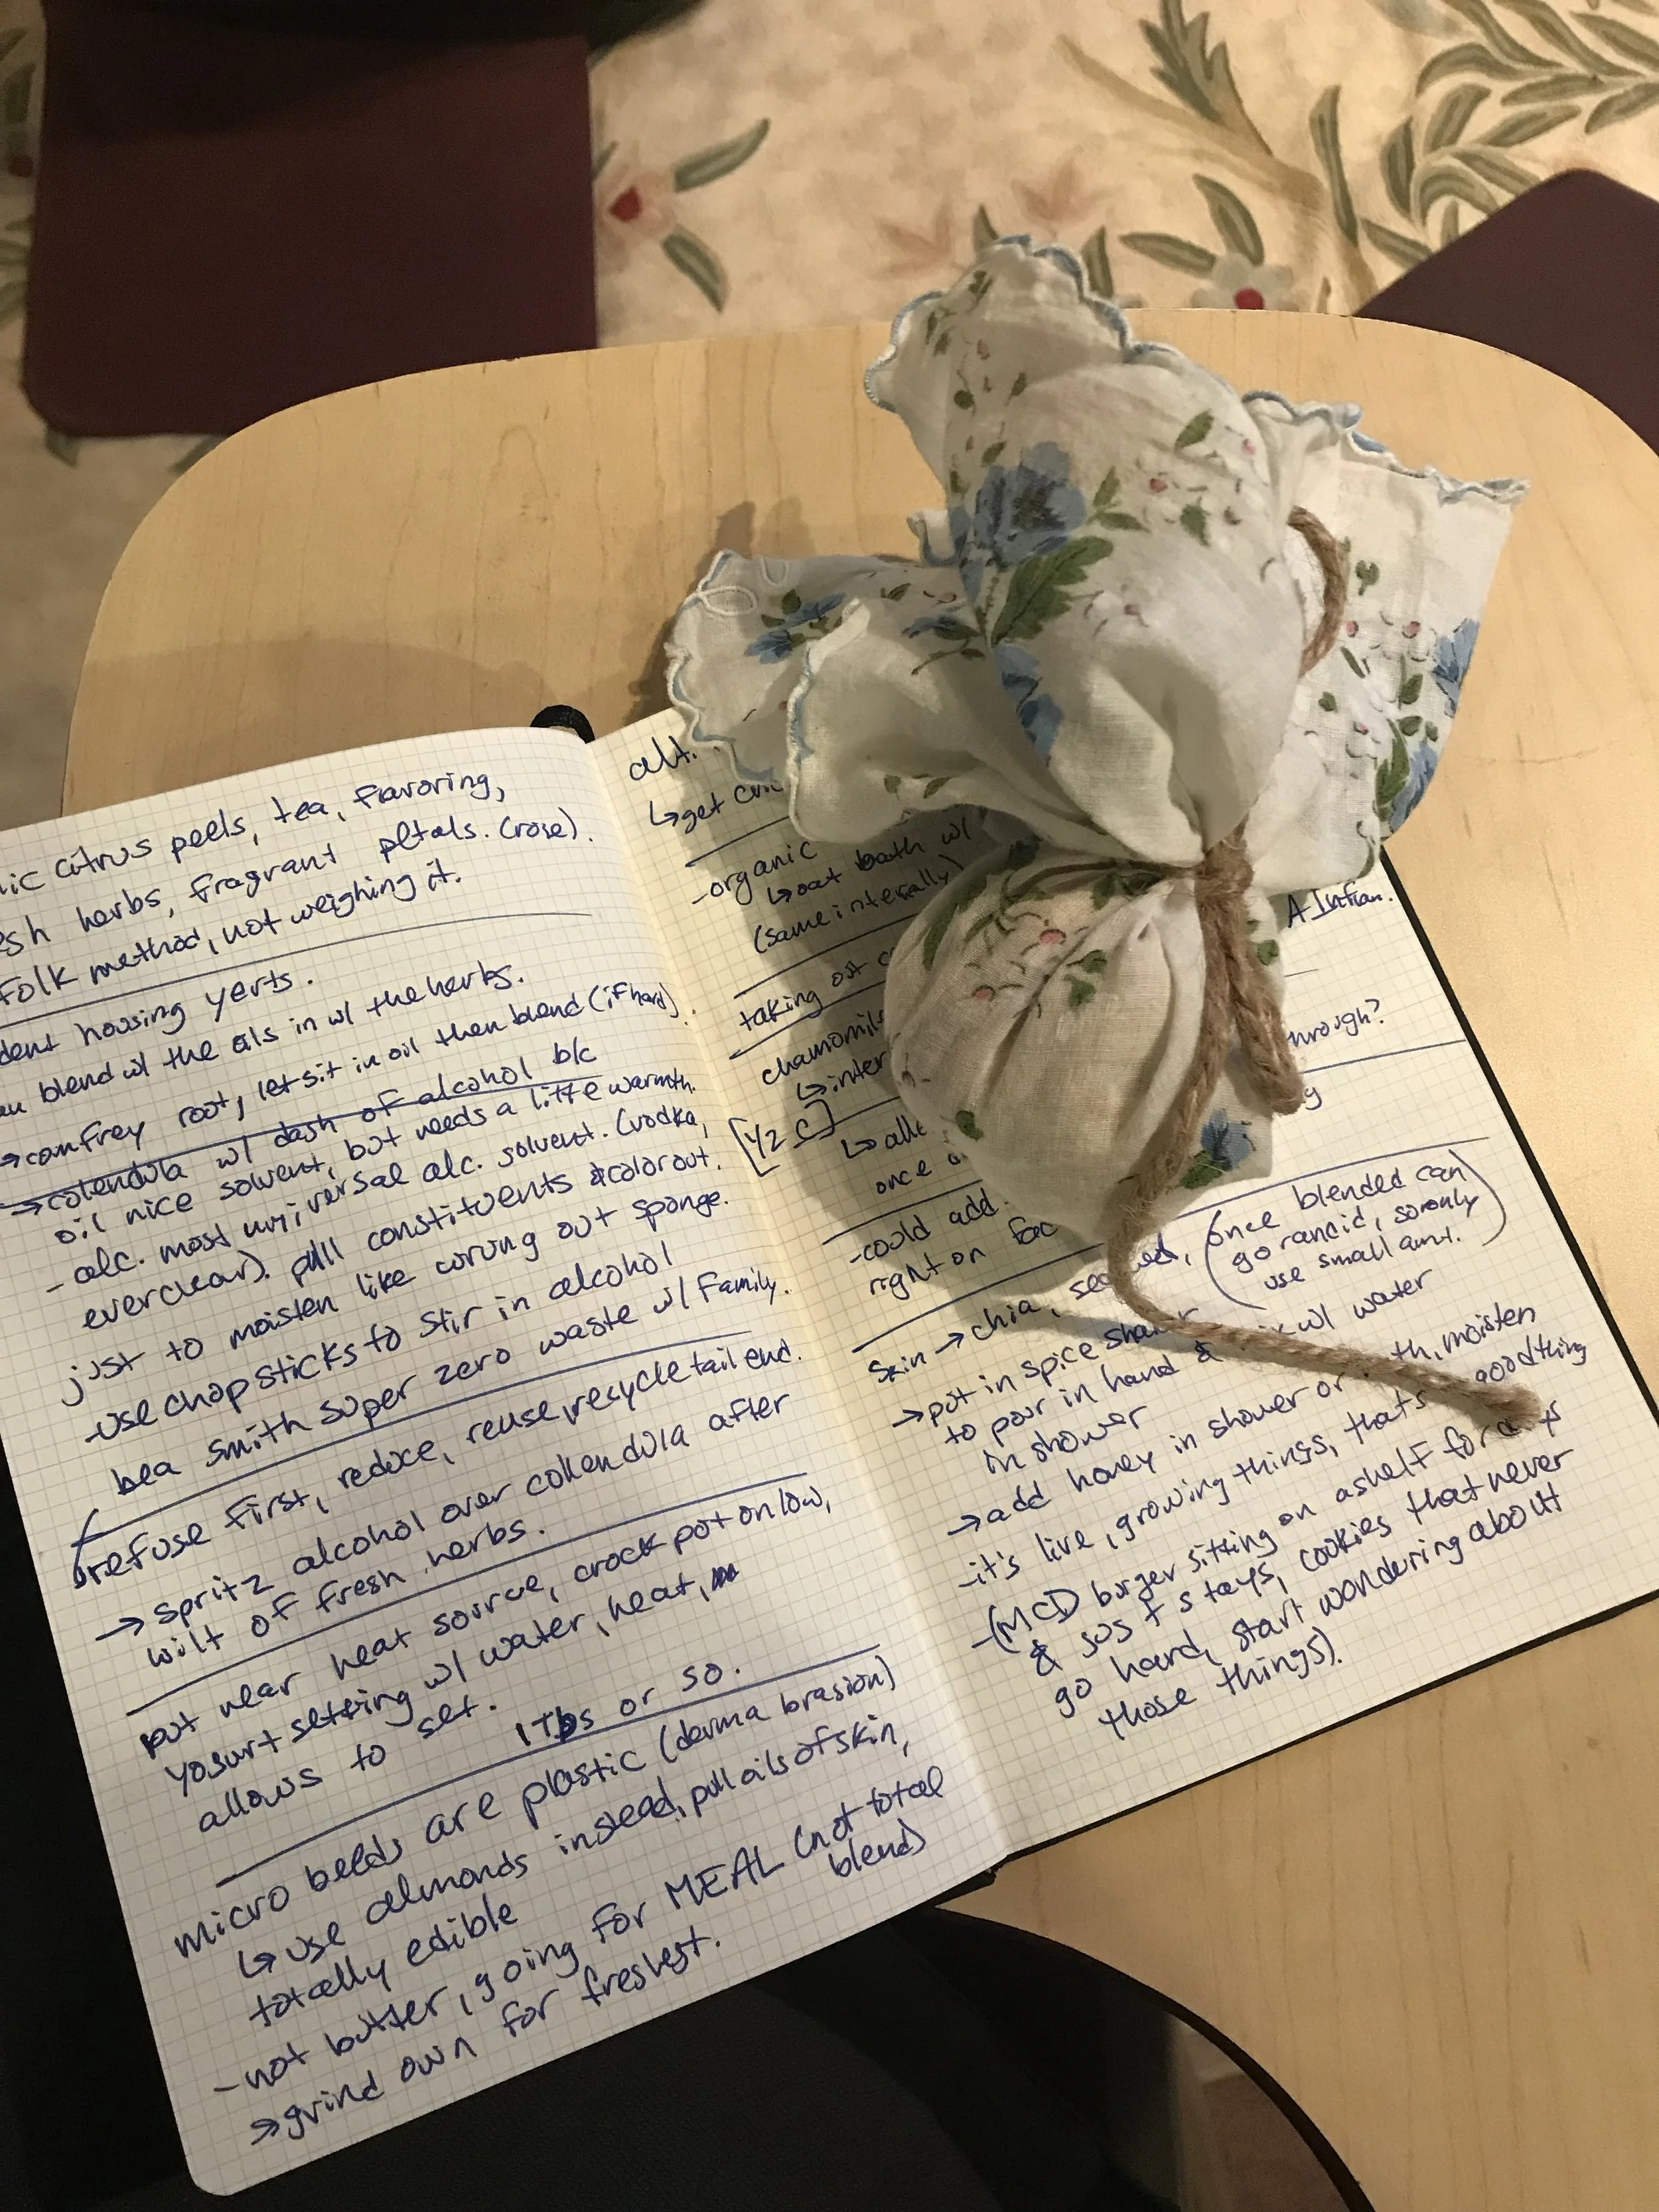 ic citrus peels, tea, flavoring,
sh herbs, fragrant petals. (rose).
Folk method, not weighing it.
dent housing yerts.
blend w/ the oils in w/ the herbs.
→comfrey root, let sit in oil then blend (if hard).
→calendula w/ dash of alcohol b/c
oil nice solvent, but needs a little warmth.
- alc. most universal alc. solvent. (vodka,
everclear). pull constituents & color out.
just to moisten like wrung out sponge.
-use chopsticks to stir in alcohol
bea smith super zero waste w/ Family.
refuse first, reduce, reuse, recycle tail end.
→ Spritz alcohol over calendula after
wilt of fresh herbs.
put near heat source, crock pot on low,
yogurt setting w/ water, heat,
allows to set.
1 Tbs or so.
micro beads are plastic (derma brasion)
↳ use almonds instead, pull oils of skin,
totally edible
- not butter, going for MEAL (not total
blend)
→grind own for freshest.
alt.
↳get
-organic
↳oat bath w/
(same internally)
A Infran.
taking out
hrough?
chamomile
↳inter
[1/2 C]
↳
once
g
-could add
right on fac
Skin → chia, (once blended can
go rancid, so only
use small amt.)
→put in spice shaker
to pour in hand & w/ water
in shower
→add honey in shower or th, moisten
-it's live, growing things, that's good thing
-(MCD burger sitting on a shelf for
& just stays, cookies that never
go hard, start wondering about
those things).